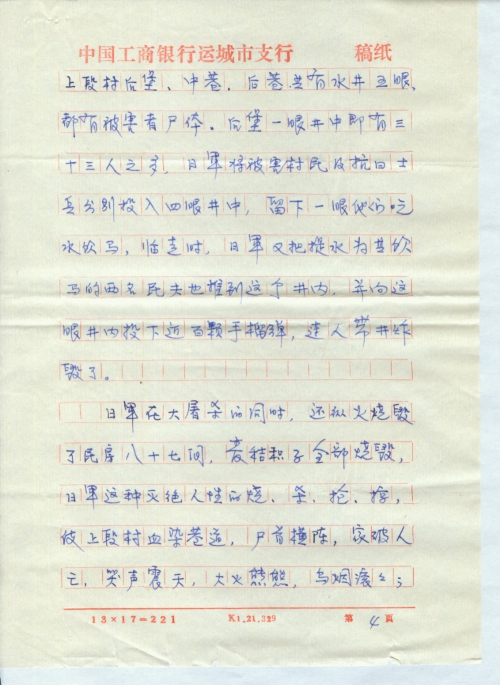 中国工商银行运城市支行　稿纸
上段村后堡、中巷、后巷共有水井五眼、
都有被害者尸体。后堡一眼井中即有三
十三人之多，日军将被害村民及抗日士
兵分别投入四眼井中，留下一眼他们吃
水饮马，临走时，日军又把提水为其饮
马的两名民夫也推到这个井内，并向这
眼井内投下近百颗手榴弹，连人带井炸
毁了。
日军在大屠杀的同时，还纵火烧毁
了民房八十七间，麦秸积子全部烧毁，
日军这种灭绝人性的烧、杀、抢、掠，
使上段村血染巷道，尸首横陈，家破人
亡，哭声震天，大火熊熊，乌烟滚々
13×17=221　K1.21.329　第 4 頁